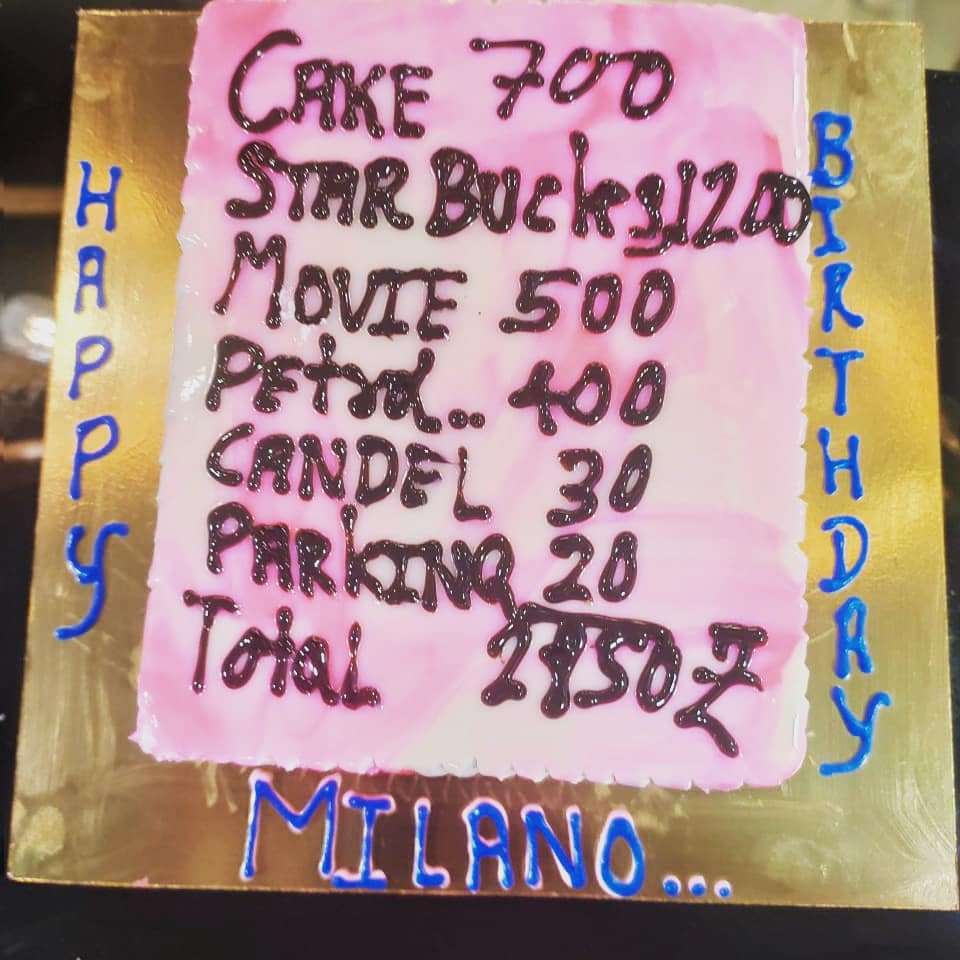 CAKE 700
STAR BUcks 1200
MOVIE 500
PEtrol.. 400
CANDEL 30
PARKING 20
Total 2750₹
HAPPY
BIRTHDAY
MILANO...